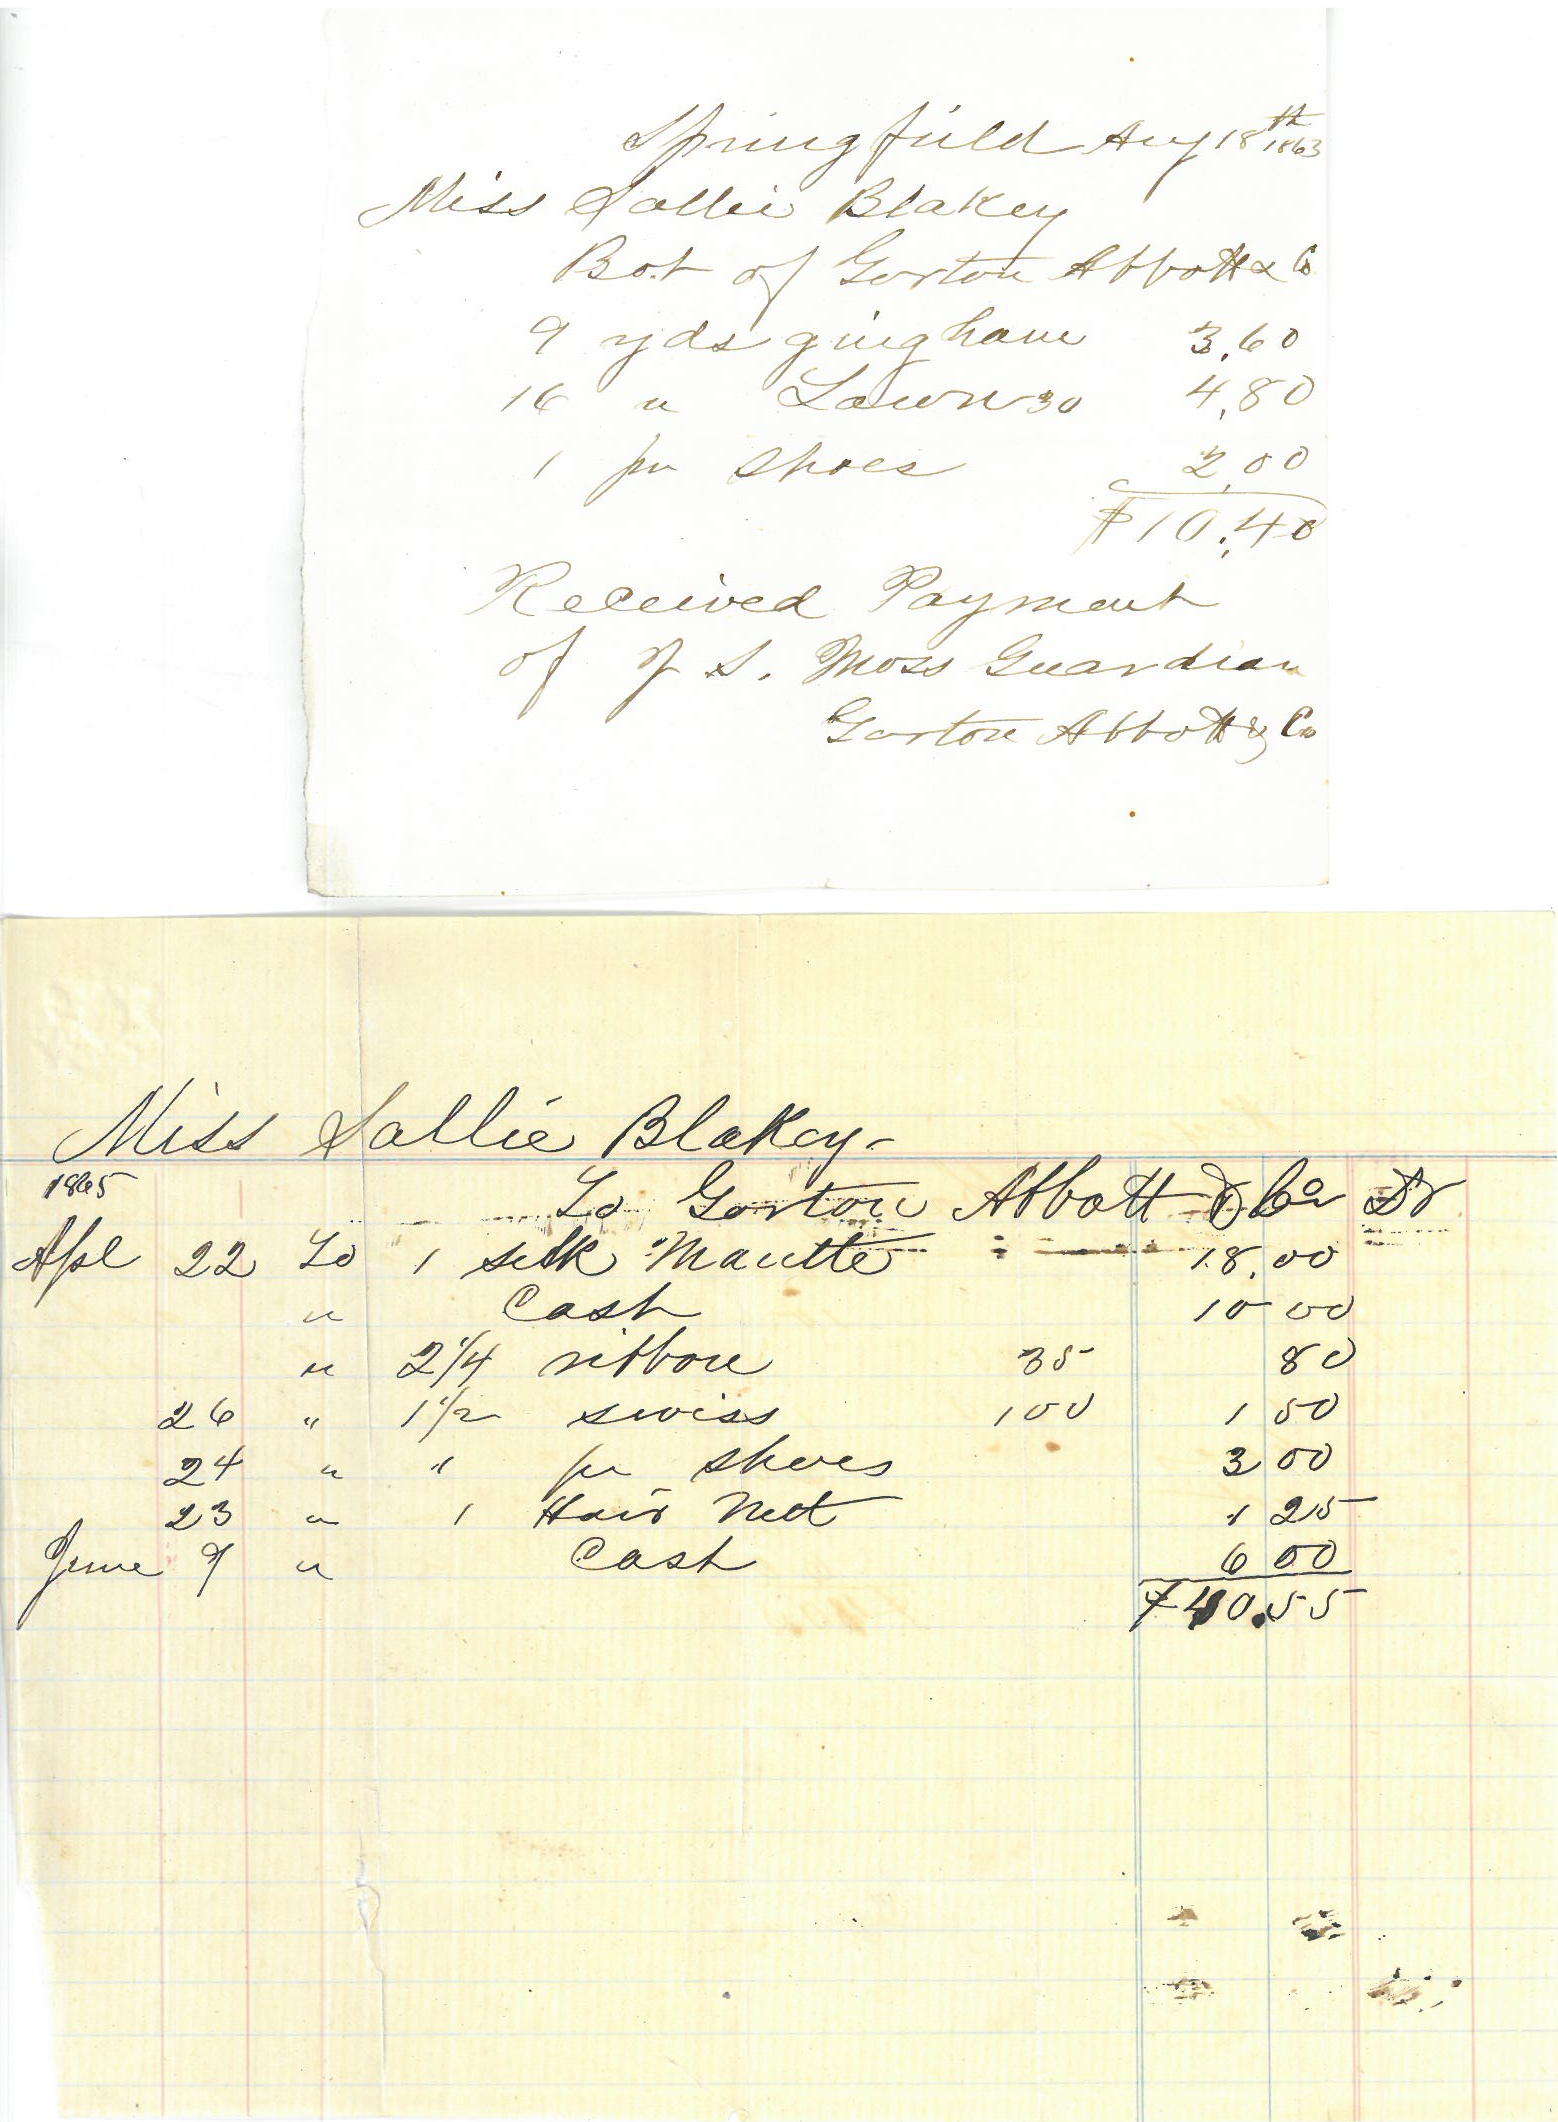 Springfield Aug 18th 1863
Miss Sallie Blakey
Bot of Gorton Abbott & Co
9 yds gingham 3.60
16 " Lawn 30 4.80
1 pr Shoes 2.00
$10.40
Received Payment
of J S. Moss Guardian
Gorton Abbott & Co
Miss Sallie Blakey-
1865 To Gorton Abbott & Co Dr
Apl 22 To 1 silk Mantle 18.00
" Cash 10 00
" 2 1/4 ribbon 35 80
26 " 1 1/2 swiss 100 1 50
24 " " pr shoes 3 00
23 " 1 Hair Nett 1 25
June 9 " Cash 6 00
$40.55